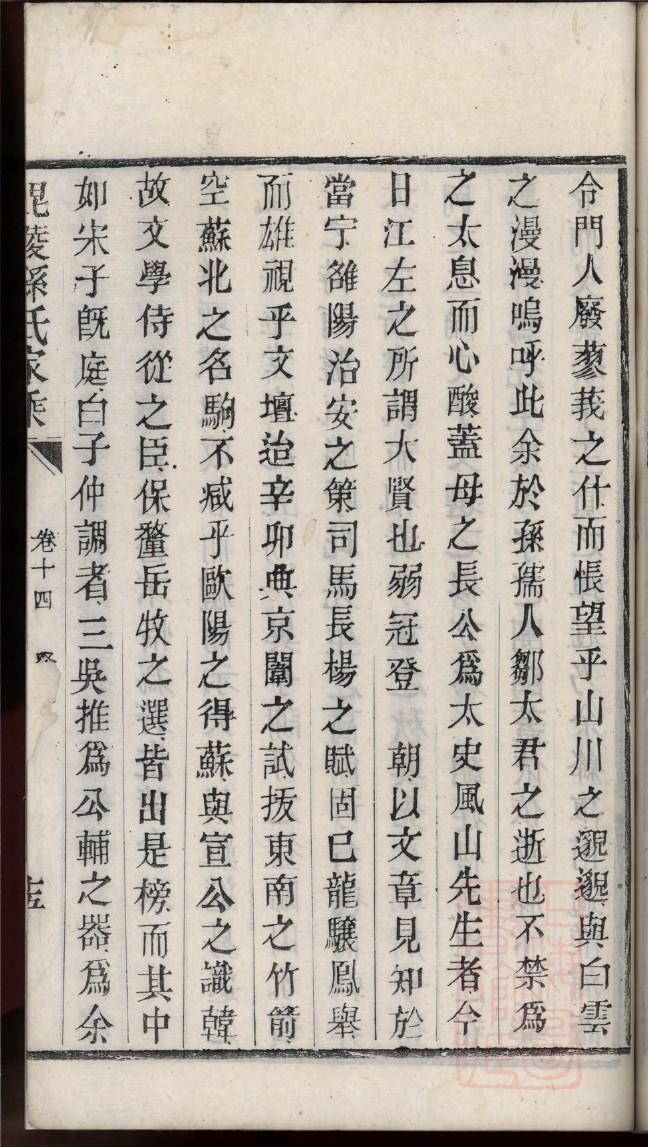 令門人廢蓼莪之什而悵望乎山川之邈邈與白雲
之漫漫嗚呼此余於孫孺人鄒太君之逝也不禁爲
之太息而心酸蓋母之長公爲太史風山先生者今
日江左之所謂大賢也弱冠登　朝以文章見知於
當宁雒陽治安之策司馬長楊之賦固已龍驤鳳舉
而雄視乎文壇迨辛卯典京闈之試拔東南之竹箭
空蘇北之名駒不减乎歐陽之得蘇與宣公之識韓
故文學侍從之臣保釐岳牧之選皆出是榜而其中
如宋子旣庭白子仲調者三吳推爲公輔之器爲余
毘陵孫氏家乘
卷十四